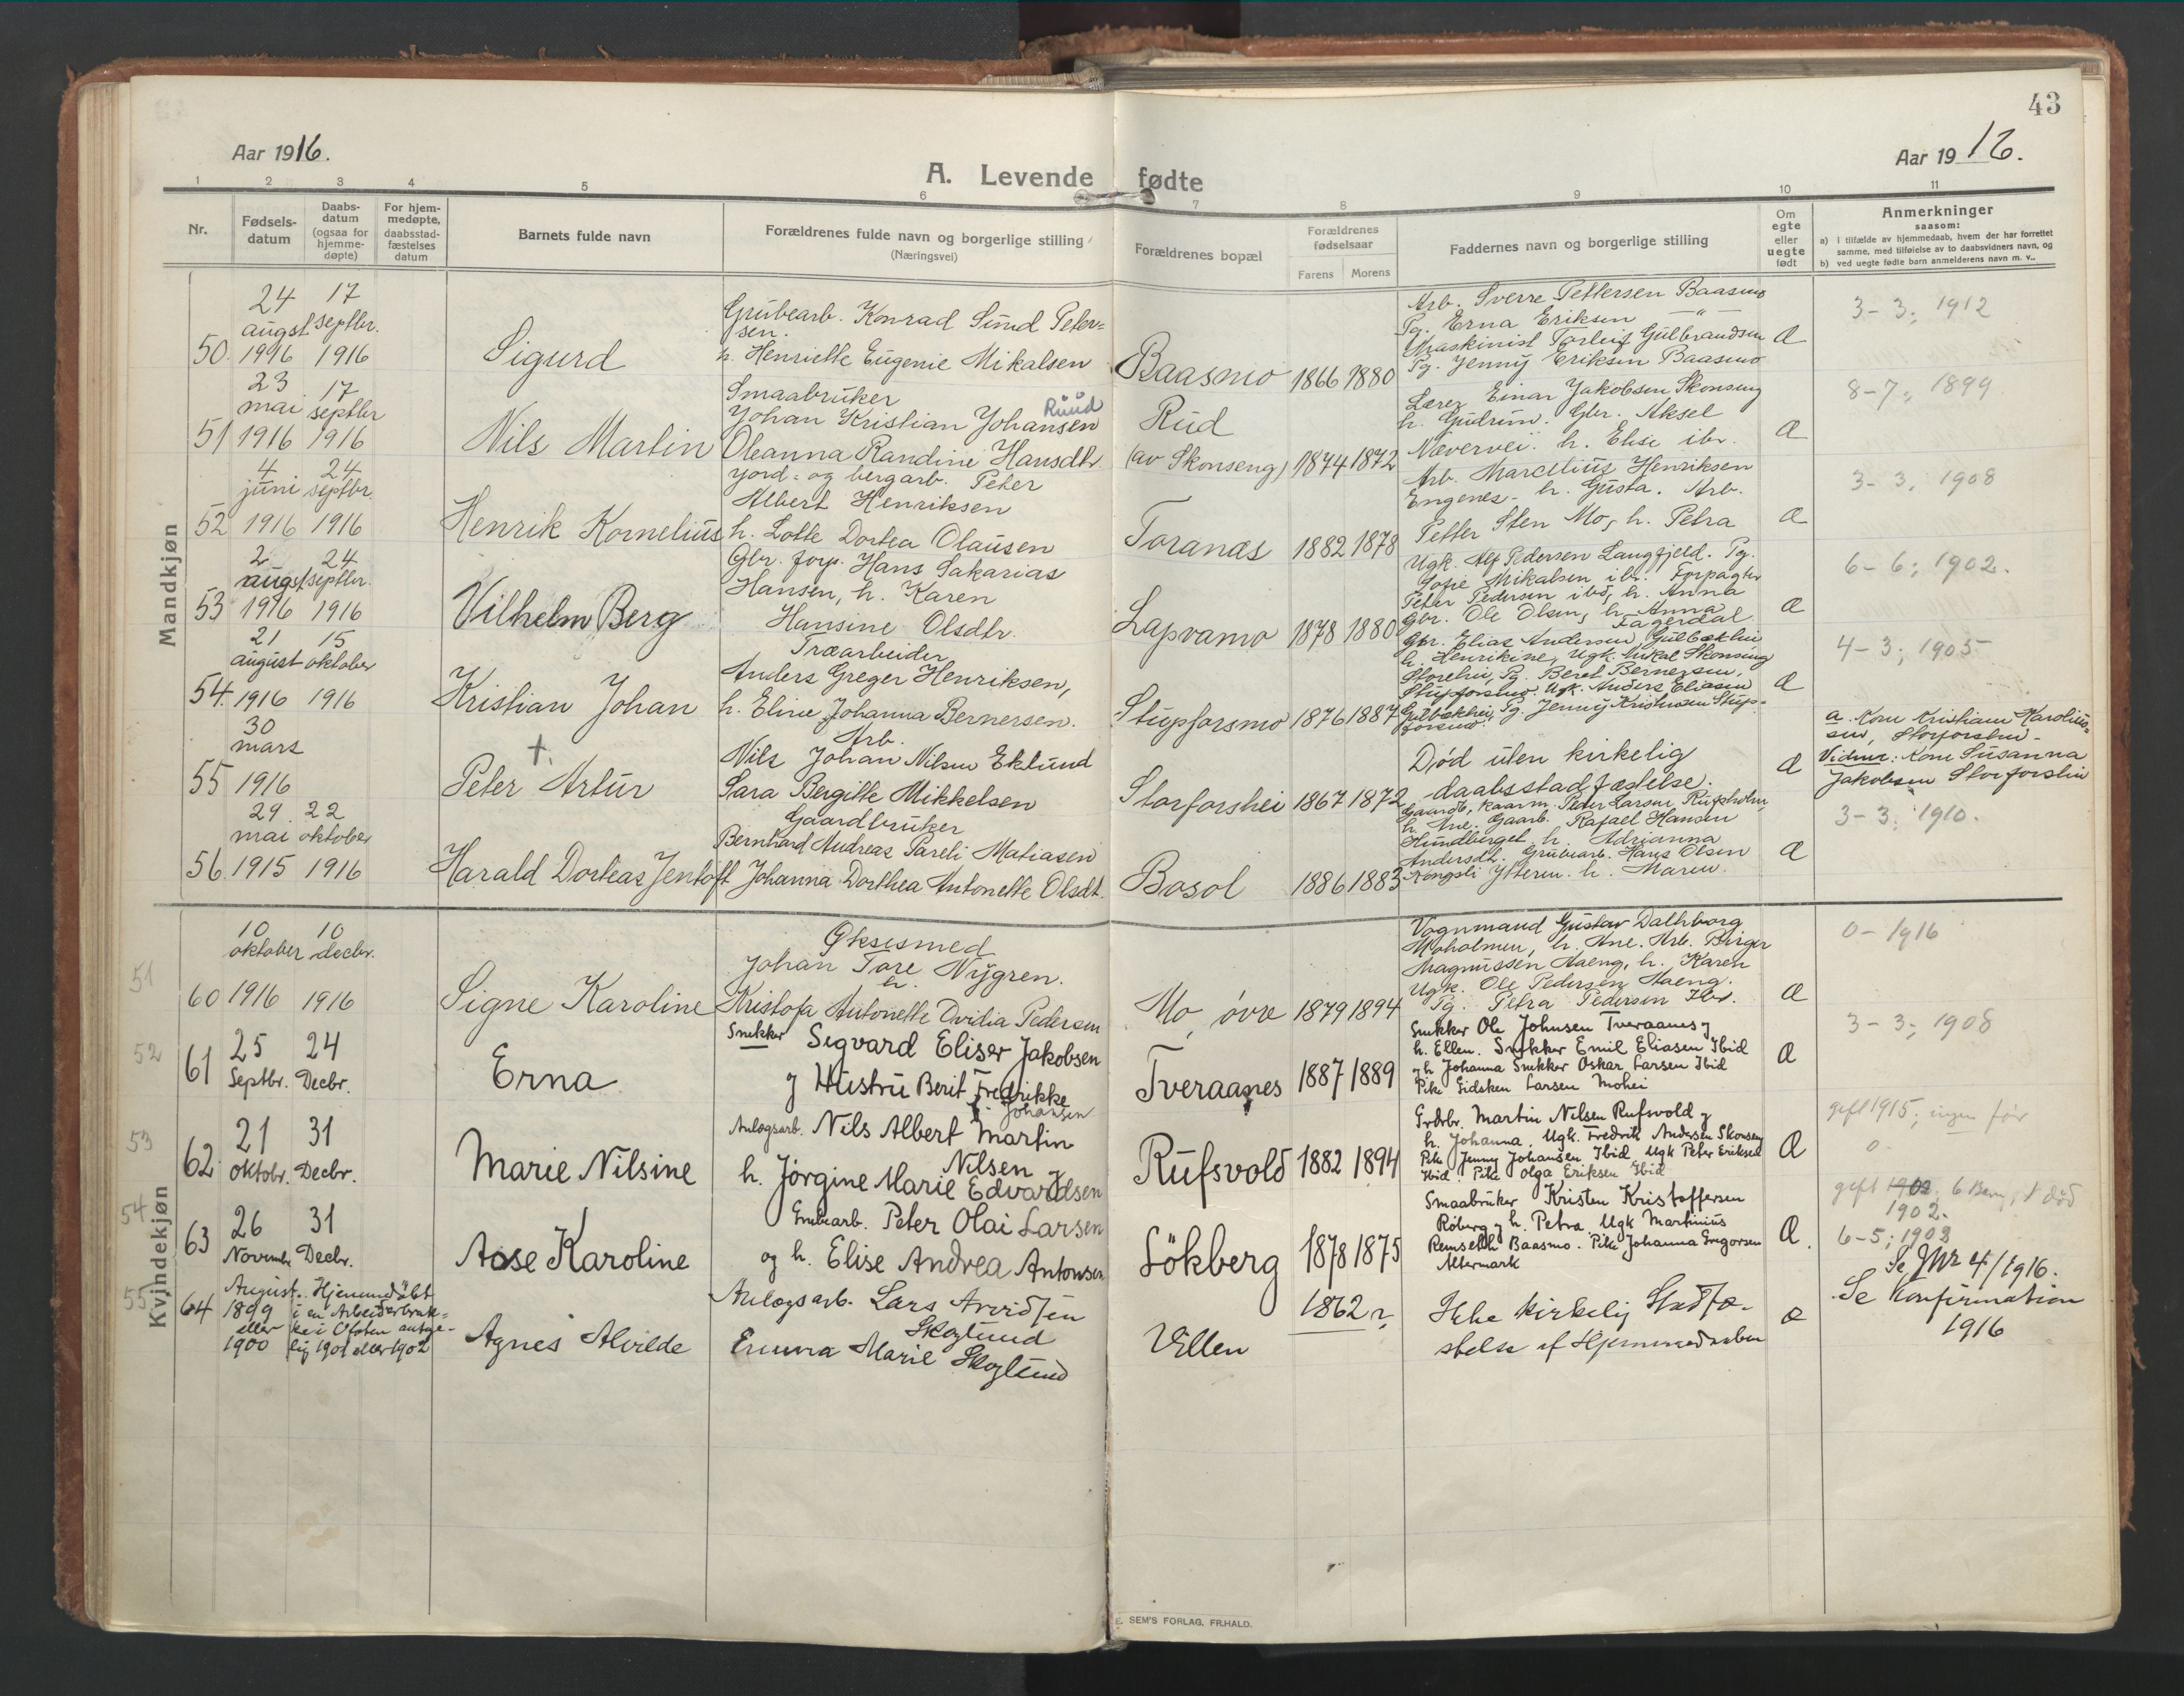 43
Aar 1916.
A. Levende fødte
Aar 1916.
1 2 3 4 5 6 7 8 9 10 11
Nr.
Fødsels-
datum
Daabs-
datum
(ogsaa for
hjemme-
døpte)
For hjem-
medøpte,
daabsstad-
fæstelses
datum
Barnets fulde navn
Forældrenes fulde navn og borgerlige stilling
(Næringsvei)
Forældrenes bopæl
Forældrenes
fødselsaar
Farens Morens
Faddernes navn og borgerlige stilling
Om
egte
eller
uegte
født
Anmerkninger
saasom:
a) i tilfælde av hjemmedaab, hvem der har forrettet
samme, med tilføielse av to daabsvidners navn, og
b) ved uegte fødte barn anmelderens navn m. v..
Mandkjøn
50.
24
augst
1916
17
septbr.
1916
Sigurd
Grubearb. Konrad Sund Peter=
sen.
h. Henriette Eugenie Mikalsen
Baasmo
1866 1880
Arb. Sverre Pettersen Baasmo
Pg. Erna Eriksen —"—
Maskinist Torleif Gulbrandsen
Pg. Jenny Eriksen Baasmo
Æ
3-3; 1912
51
23
mai
1916
17
septbr
1916
Nils Martin
Smaabruker
Johan Kristian Johansen
Ruud
Oleanna Randine Hansdtr.
Rud
(av Skonseng)
1874 1872
Lærer Einar Jakobsen Skonseng
h. Gudrun. Gbr. Aksel
Nævervei. h. Elise ibr.
Æ
8-7; 1899
52
4
juni
1916
24
septbr.
1916
Henrik Kornelius
Jord= og bergarb. Peter
Albert Henriksen
h. Lotte Dortea Olausen
Toranæs
1882 1878
Arb. Marcelius Henriksen
Engenes- h. Gusta. Arb.
Petter Sten Mo, h. Petra
Æ
3-3, 1908
53
2
augst
1916
24
septbr.
1916
Vilhelm Berg
Gbr. forp. Hans Sakarias
Hansen, h. Karen
Hansine Olsdtr.
Lapvamo
1878 1880
Ugk. Alf Pedersen Langfjeld. Pg.
Sofie Mikalsen ibr. Forpagter
Peter Pedersen ibd, h. Anna
Gbr. Ole Olsen, h. Anna
Fagerdal
Æ
6-6; 1902.
54.
21
august
1916
15
oktober
1916
Kristian Johan
Træarbeider
Anders Greger Henriksen,
h. Eline Johanna Bernersen.
Stupforsmo
1876 1887
Gbr. Elias Andersen, Gulbækhei
h. Henrikine, Ugk. Mikal Skonseng
Storehei, Pg. Beret Bernersen,
Stupforsmo. Ugk. Anders Eliasen
Gulbækhei, Pg. Jenny Kristensen Stup=
forsmo.
Æ
4-3; 1905
55
30
mars
1916
+
Peter Artur
Arb.
Nils Johan Nilsen Eklund
Sara Bergitte Mikkelsen
Storforshei
1867 1872
Død uten kirkelig
daabsstadfæstelse.
Æ
a. Kone Kristiane Karolius=
sen, Storforshei -
Vidner: Kone Susanna
Jakobsen Storforshei
56.
29
mai
1915
22
oktober
1916
Harald Dorteas Jentoft
Gaardbruker
Bernhard Andreas Pareli Matiasen
Johanna Dorthea Antonette Olsdt.
Bosol
1886 1883
Gaardb, kaarm. Peder Larsen, Rufsholm,
h. Ane. Gaarb. Rafael Hansen
Hundberget h. Adrianna
Andersdtr. Grubearb. Hans Olsen
Kongsli Ytteren. h. Maren.
Æ
3-3; 1910.
Kvindekjøn
51
60
10
oktober
1916
10
decbr.
1916
Signe Karoline
Øksesmed
Johan Tore Nygren.
h.
Kristofa Antonette Ovidia Pedersen
Mo, øvre
1879 1894
Vognmand Gustav Dathborg
Moholmen, h. Ane. Arb. Birger
Magnussen Haeng, h. Karen
Ugk. Ole Pedersen Haeng.
Pg. Petra Pedersen Ibd.
Æ
0- 1916
52
61
25
Septbr.
24
Decbr.
Erna
Snekker Sigvard Eliser Jakobsen
og Hustru Berit Fredrikke
Johansen
Tveraanes
1887 1889
Snekker Ole Johnsen Tveraanes og
h. Ellen. Snekker Emil Eliasen Ibid
og h Johanna Snekker Oskar Larsen Ibid
Pike Gidsken Larsen Mohei
Æ
3-3; 1908
53
62
21
Oktobr.
31
Decbr.
Marie Nilsine
Anlægsarb. Nils Albert Martin
Nilsen og
h. Jörgine Marie Edvardsen
Rufsvold
1882 1894
Grdbr. Martin Nilsen Rufsvold og
h. Johanna. Ugk. Fredrik Andersen Skonseng
Pike Jenny Johansen Ibid. Ugk Peter Eriksen
Ibid. Pike Olga Eriksen Ibid
Æ
gift 1915; ingen før
0-
54
63
26
Novembr
31
Decbr.
Aase Karoline
Grubearb. Peter Olai Larsen
og h. Elise Andrea Antonsen
Lökberg
1878 1875
Smaabruker Kristen Kristoffersen
Röberg og h. Petra. Ugk Martinius
Remseth Baasmo. Pike Johanna Gregorsen
Altermark
Æ.
gift 1902. 6 Barn, 1 død
1902.
6-5; 1902
55
64
August
1899
eller
1900
Hjemmedöbt
i en Arbeiderbrak=
ke i Ofoten antge-
lig 1901 eller 1902
Agnes Alvilde
Anlægsarb. Lars Arvidsen
Skoglund
Emma Marie Skoglund
Villen
1862?
Ikke kirkelig Stadfæ-
stelse af Hjemmedaaben
Æ
Se JNr 4/1916.
Se Konfirmation
1916
E. SEM'S FORLAG, FR.HALD.